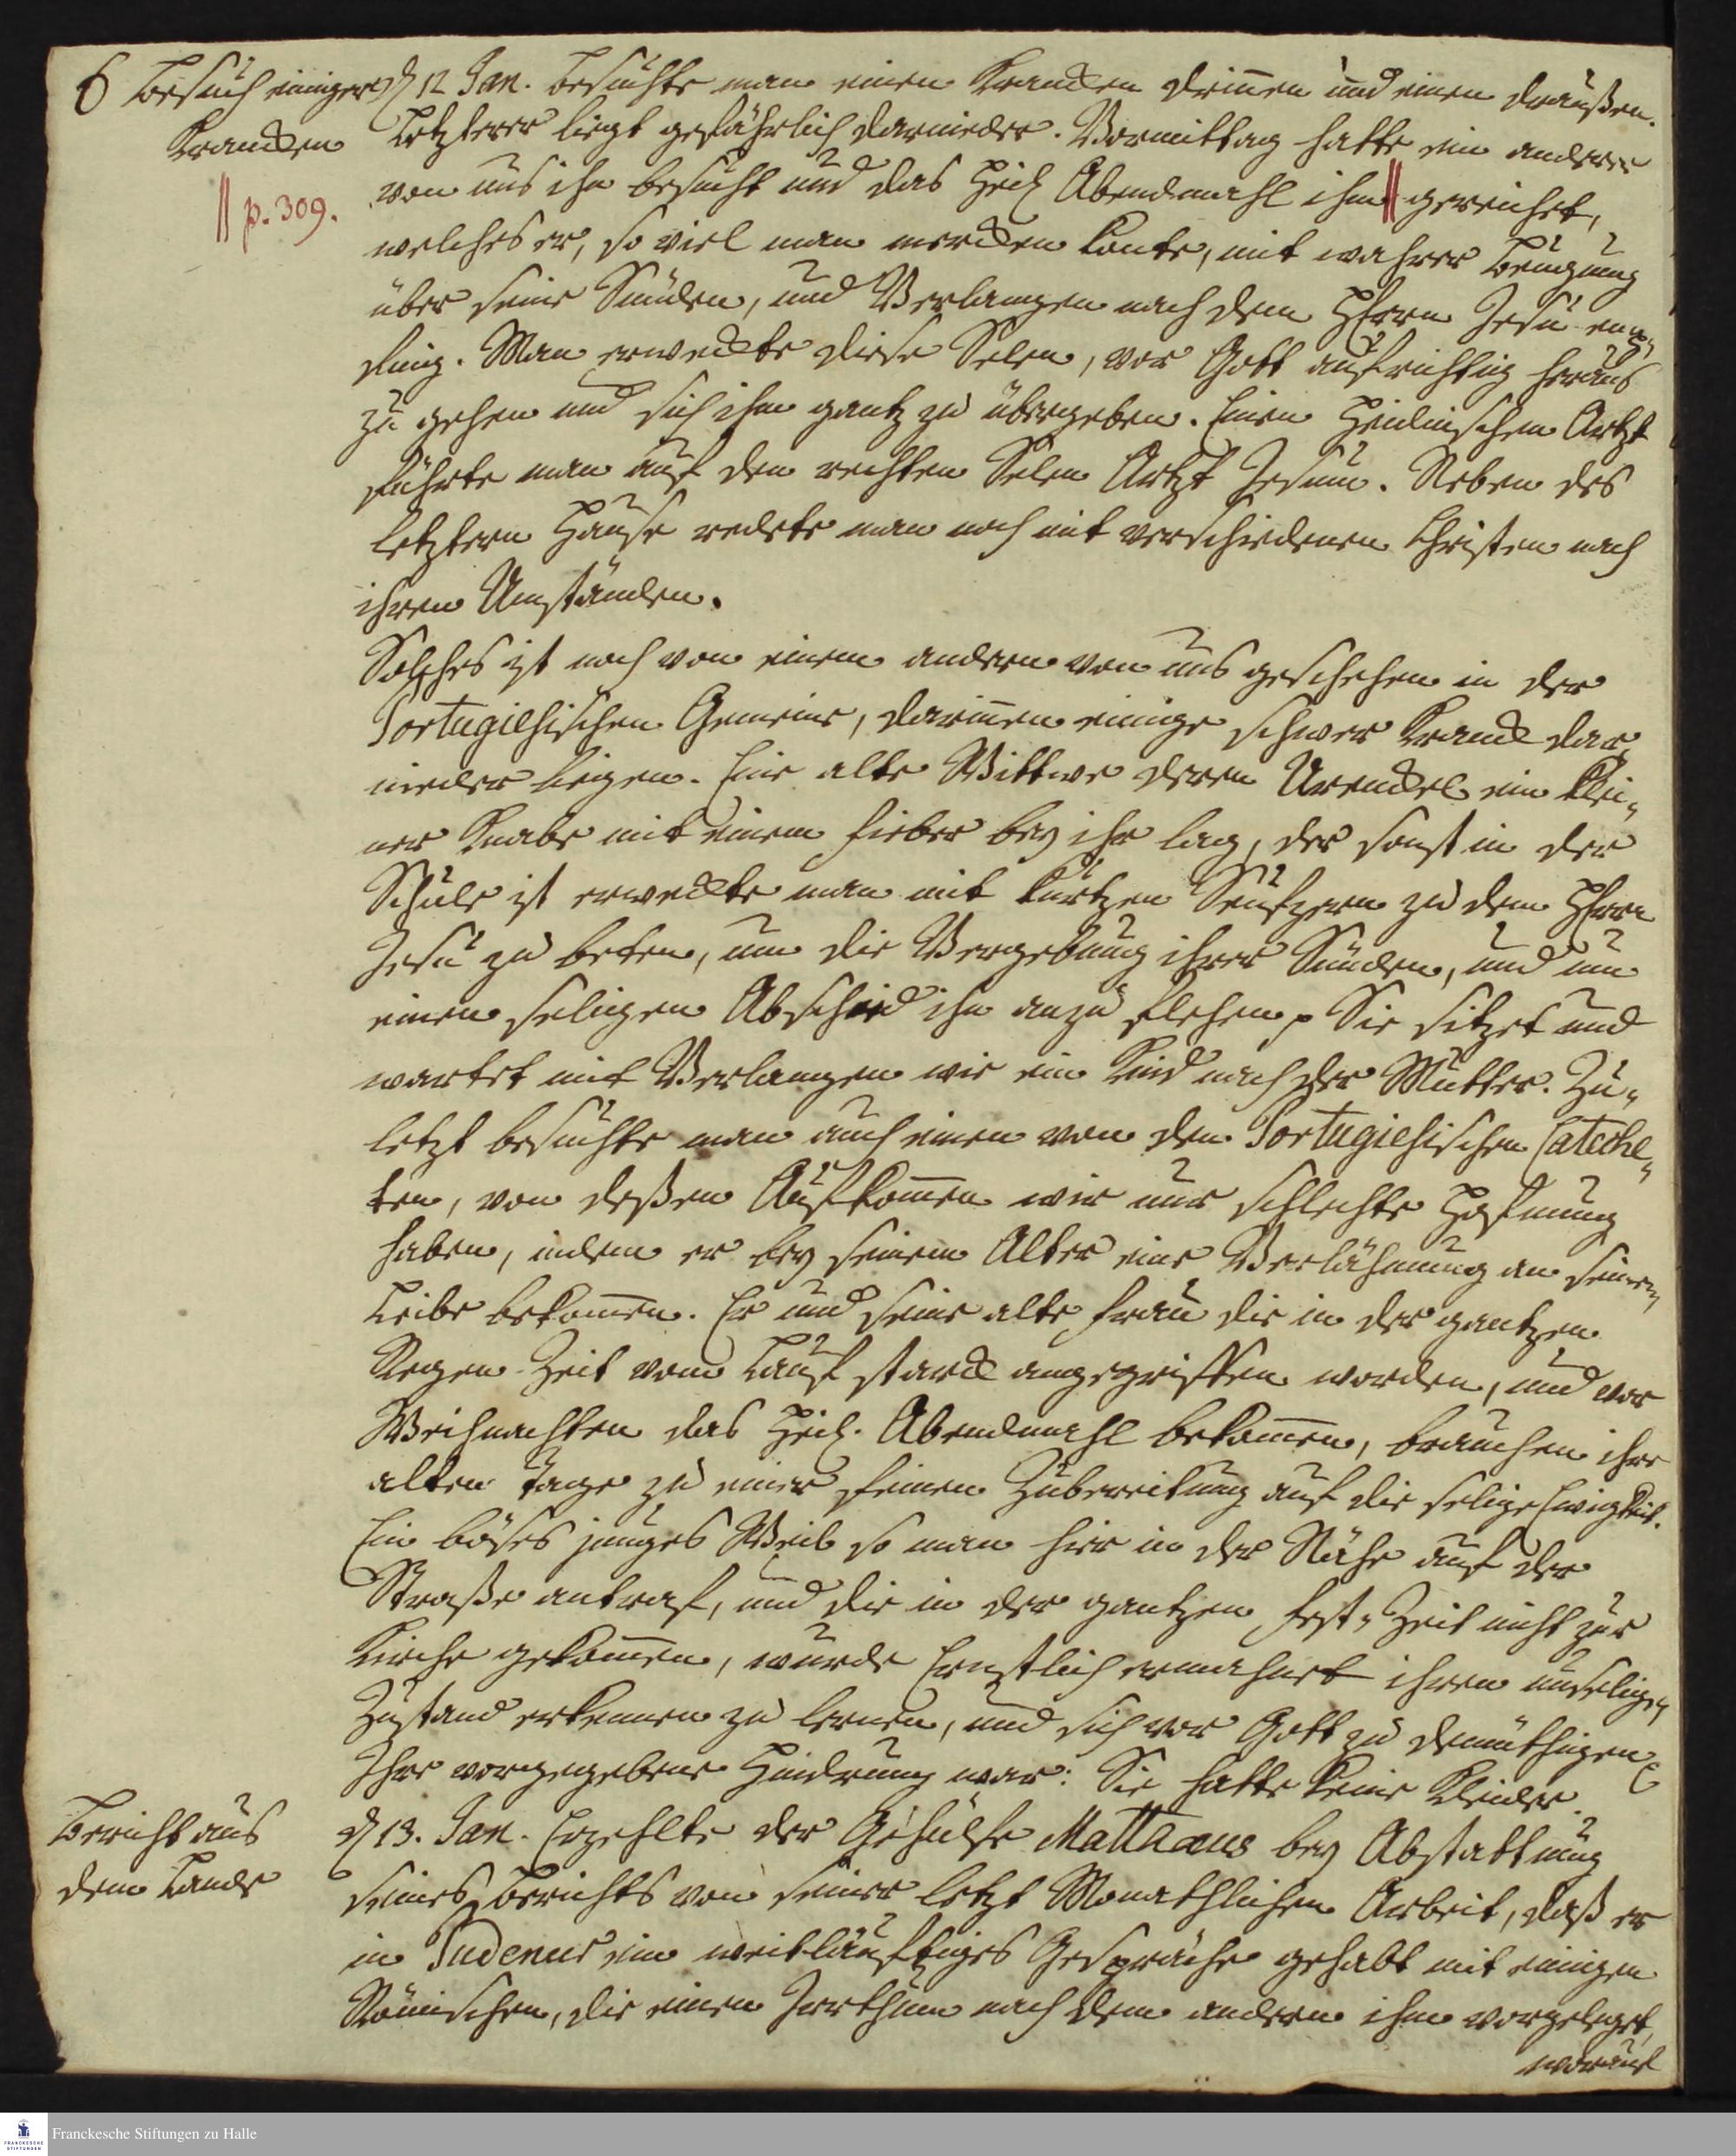 6 Besuch einiger
Krancken
|| p. 309.
d 12 Jan. Besuchte man einen Krancken drinnen und einen draußen.
Letzterer liegt gefährlich darnieder. Vormittag hatte ein anderer
von uns ihn besucht und das Heil Abendmahl ihm || gereichet,
welches er, so viel man mercken konte, mit wahrer Beugung
über seine Sünden, und Verlangen nach dem HErrn Jesu emp„
fing. Man erweckte diese Selen, vor Gott aufrichtig heraus
zu gehen und sich ihm gantz zu übergeben. Einen Heidnischen Artzt
führte man auf den rechten Selen Artzt Jesum. Neben des
letztern Hause redete man noch mit verschiedenen Christen nach
ihren Umständen.
Solches ist noch von einem andern von uns geschehen in der
Portugiesischen Gemeine, darinnen einige schwer kranck dar„
nieder liegen. Eine alte Wittwe deren Urenckel ein klei„
ner Knabe mit einem Fieber bey ihr lag, der sonst in der
Schule ist erweckte man mit kurtzen Seufzern zu dem HErrn
Jesu zu beten, um die Vergebung ihrer Sünden, und um
einen seligen Abschied ihn anzu flehen. Sie sitzet und
wartet mit Verlangen wie ein Kind nach der Mutter. Zu„
letzt besuchte man auch einen von den Portugiesischen Cateche„
ten, von deßen Aufkommen wir nur schlechte Hofnung
haben, indem er bey seinem Alter eine Verlähmung an seinem
Leibe bekommen. Er und seine alte Frau die in der gantzen
Regen-Zeit vom Lauf starck angegriffen worden, und vor
Weihnachten das Heil. Abendmahl bekommen, brauchen ihre
alten Tage zu einer feinen Zubereitung auf die selige Ewigkeit.
Ein böses junges Weib so man hier in der Nähe auf der
Straße antraf, und die in der gantzen Fest„Zeit nicht zur
Kirche gekommen, wurde Ernstlich ermahnet ihren unseligen
Zustand erkennen zu lernen, und sich vor Gott zu demüthigen.
Ihre vorgegebene Hindrung war: Sie hatte keine Kleider.
Bericht aus
dem Lande
d 13. Jan. Erzehlte der Gehülfe Matthaeus bey Abstattung
seines Berichts von seiner letzt Monathlichen Arbeit, daß er
in Pudenur ein weitläuftiges Gespräche gehabt mit einigen
Römischen, die einen Irrthum nach dem andern ihm vorgeleget,
worauf
Franckesche Stiftungen zu Halle